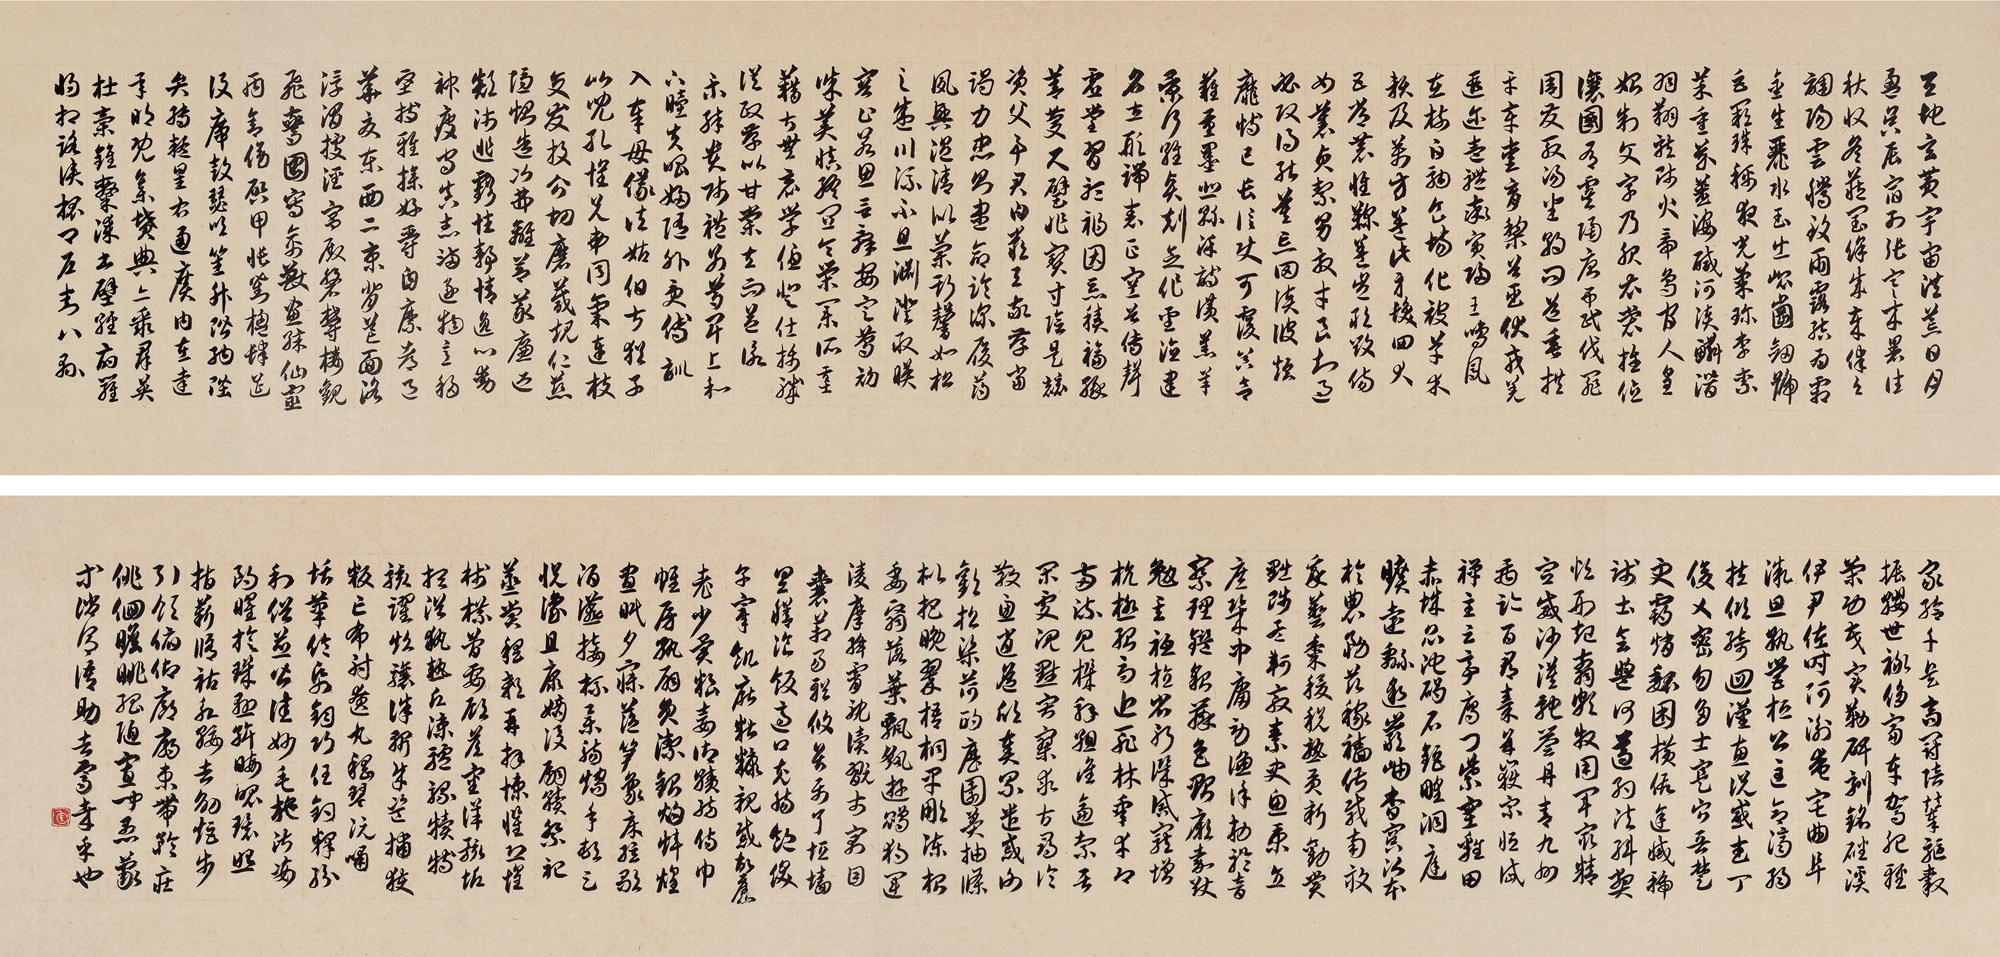 天地玄黃宇宙洪荒日月
盈昃辰宿列張寒來暑往
秋收冬藏閏餘成歲律呂
調陽雲騰致雨露結為霜
金生麗水玉出崑岡劍號
巨闕珠稱夜光菓珍李柰
菜重芥薑海醎河淡鱗潛
羽翔龍師火帝鳥官人皇
始制文字乃服衣裳推位
讓國有虞陶唐弔民伐罪
周發殷湯坐朝問道垂拱
平章愛育黎首臣伏戎羌
遐邇壹體率賓歸王鳴鳳
在樹白駒食場化被草木
賴及萬方蓋此身髮四大
五常恭惟鞠養豈敢毀傷
女慕貞絜男效才良知過
必改得能莫忘罔談彼短
靡恃己長信使可覆器欲
難量墨悲絲染詩讚羔羊
景行維賢剋念作聖德建
名立形端表正空谷傳聲
虛堂習聽禍因惡積福緣
善慶尺璧非寶寸陰是競
資父事君曰嚴與敬孝當
竭力忠則盡命臨深履薄
夙興溫凊似蘭斯馨如松
之盛川流不息淵澄取暎
容止若思言辭安定篤初
誠美慎終宜令榮業所基
籍甚無竟學優登仕攝職
從政存以甘棠去而益詠
樂殊貴賤禮別尊卑上和
下睦夫唱婦隨外受傅訓
入奉母儀諸姑伯叔猶子
比兒孔懷兄弟同氣連枝
交友投分切磨箴規仁慈
隱惻造次弗離節義廉退
顛沛匪虧性靜情逸心動
神疲守真志滿逐物意移
堅持雅操好爵自縻都邑
華夏東西二京背芒面洛
浮渭據涇宮殿盤鬱樓觀
飛驚圖寫禽獸畫綵仙靈
丙舍傍啟甲帳對楹肆筵
設席鼓瑟吹笙升階納陛
弁轉疑星右通廣內左達
承明既集墳典亦聚群英
杜稾鍾隸漆書壁經府羅
將相路俠槐卿戶封八縣
家給千兵高冠陪輦驅轂
振纓世祿侈富車駕肥輕
策功茂實勒碑刻銘磻溪
伊尹佐時阿衡奄宅曲阜
微旦孰營桓公匡合濟弱
扶傾綺迴漢惠說感武丁
俊乂密勿多士寔寧晉楚
更霸趙魏困橫假途滅虢
踐土會盟何遵約法韓弊
煩刑起翦頗牧用軍最精
宣威沙漠馳譽丹青九州
禹跡百郡秦并嶽宗恒岱
禪主云亭雁門紫塞雞田
赤城昆池碣石鉅野洞庭
曠遠綿邈巖岫杳冥治本
於農務茲稼穡俶載南畝
我藝黍稷稅熟貢新勸賞
黜陟孟軻敦素史魚秉直
庶幾中庸勞謙謹敕聆音
察理鑒貌辨色貽厥嘉猷
勉其祗植省躬譏誡寵增
抗極殆辱近恥林皋幸即
兩疏見機解組誰逼索居
閑處沉默寂寥求古尋論
散慮逍遙欣奏累遣慼謝
歡招渠荷的歷園莽抽條
枇杷晚翠梧桐早彫陳根
委翳落葉飄颻遊鵾獨運
凌摩絳霄耽讀翫市寓目
囊箱易輶攸畏屬耳垣牆
具膳飡飯適口充腸飽飫
烹宰飢厭糟糠親戚故舊
老少異糧妾御績紡侍巾
帷房紈扇員潔銀燭煒煌
晝眠夕寐藍筍象床絃歌
酒讌接杯舉觴矯手頓足
悅豫且康嫡後嗣續祭祀
烝嘗稽顙再拜悚懼恐惶
牋牒簡要顧答審詳骸垢
想浴執熱願涼驢騾犢特
駭躍超驤誅斬賊盜捕獲
叛亡布射遼丸嵇琴阮嘯
恬筆倫紙鈞巧任釣釋紛
利俗並皆佳妙毛施淑姿
朗曜璇璣懸斡晦魄環照
指薪修祜永綏吉劭矩步
引領俯仰廊廟束帶矜莊
徘徊瞻眺孤陋寡聞愚蒙
等誚謂語助者焉哉乎也